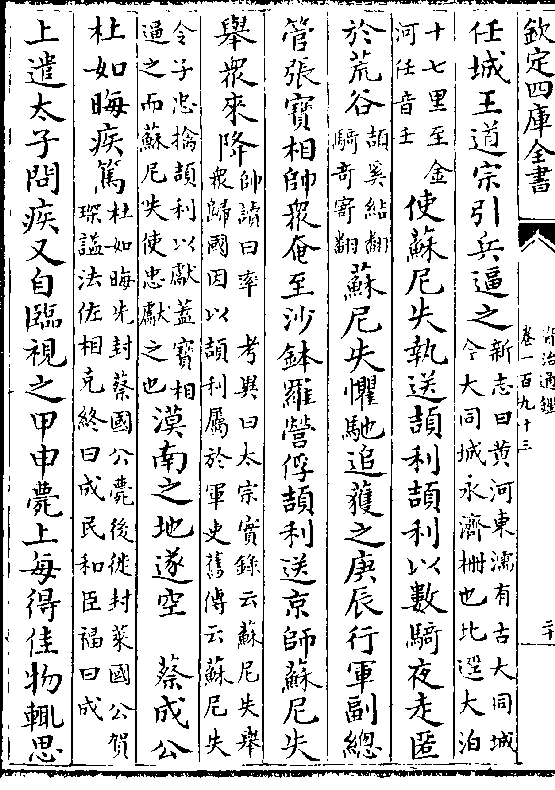 欽定四庫全書
資治通鑑
卷一百九十三
二十
任城王道宗引兵逼之新志曰黄河東濡有古大同城今大同城永濟柵也北選大泊
十七里至金河任音壬使蘇尼失執送頡利頡利以數騎夜走匿
於荒谷頡奚結翻騎奇寄翻蘇尼失懼馳追獲之庚辰行軍副總
管張寶相帥衆奄至沙鉢羅營俘頡利送京師蘇尼失
舉衆來降帥讀曰率考異曰太宗實録云蘇尼失舉衆歸國因以頡利屬於軍史舊傳云蘇尼失
令子忠擒頡利以獻蓋寶相逼之而蘇尼失使忠獻之也漠南之地遂空 蔡成公
杜如晦疾篤杜如晦先封蔡國公薨後徙封萊國公賀琛諡法佐相克終曰成民和臣福曰成
上遣太子問疾又自臨視之甲申薨上每得佳物輒思